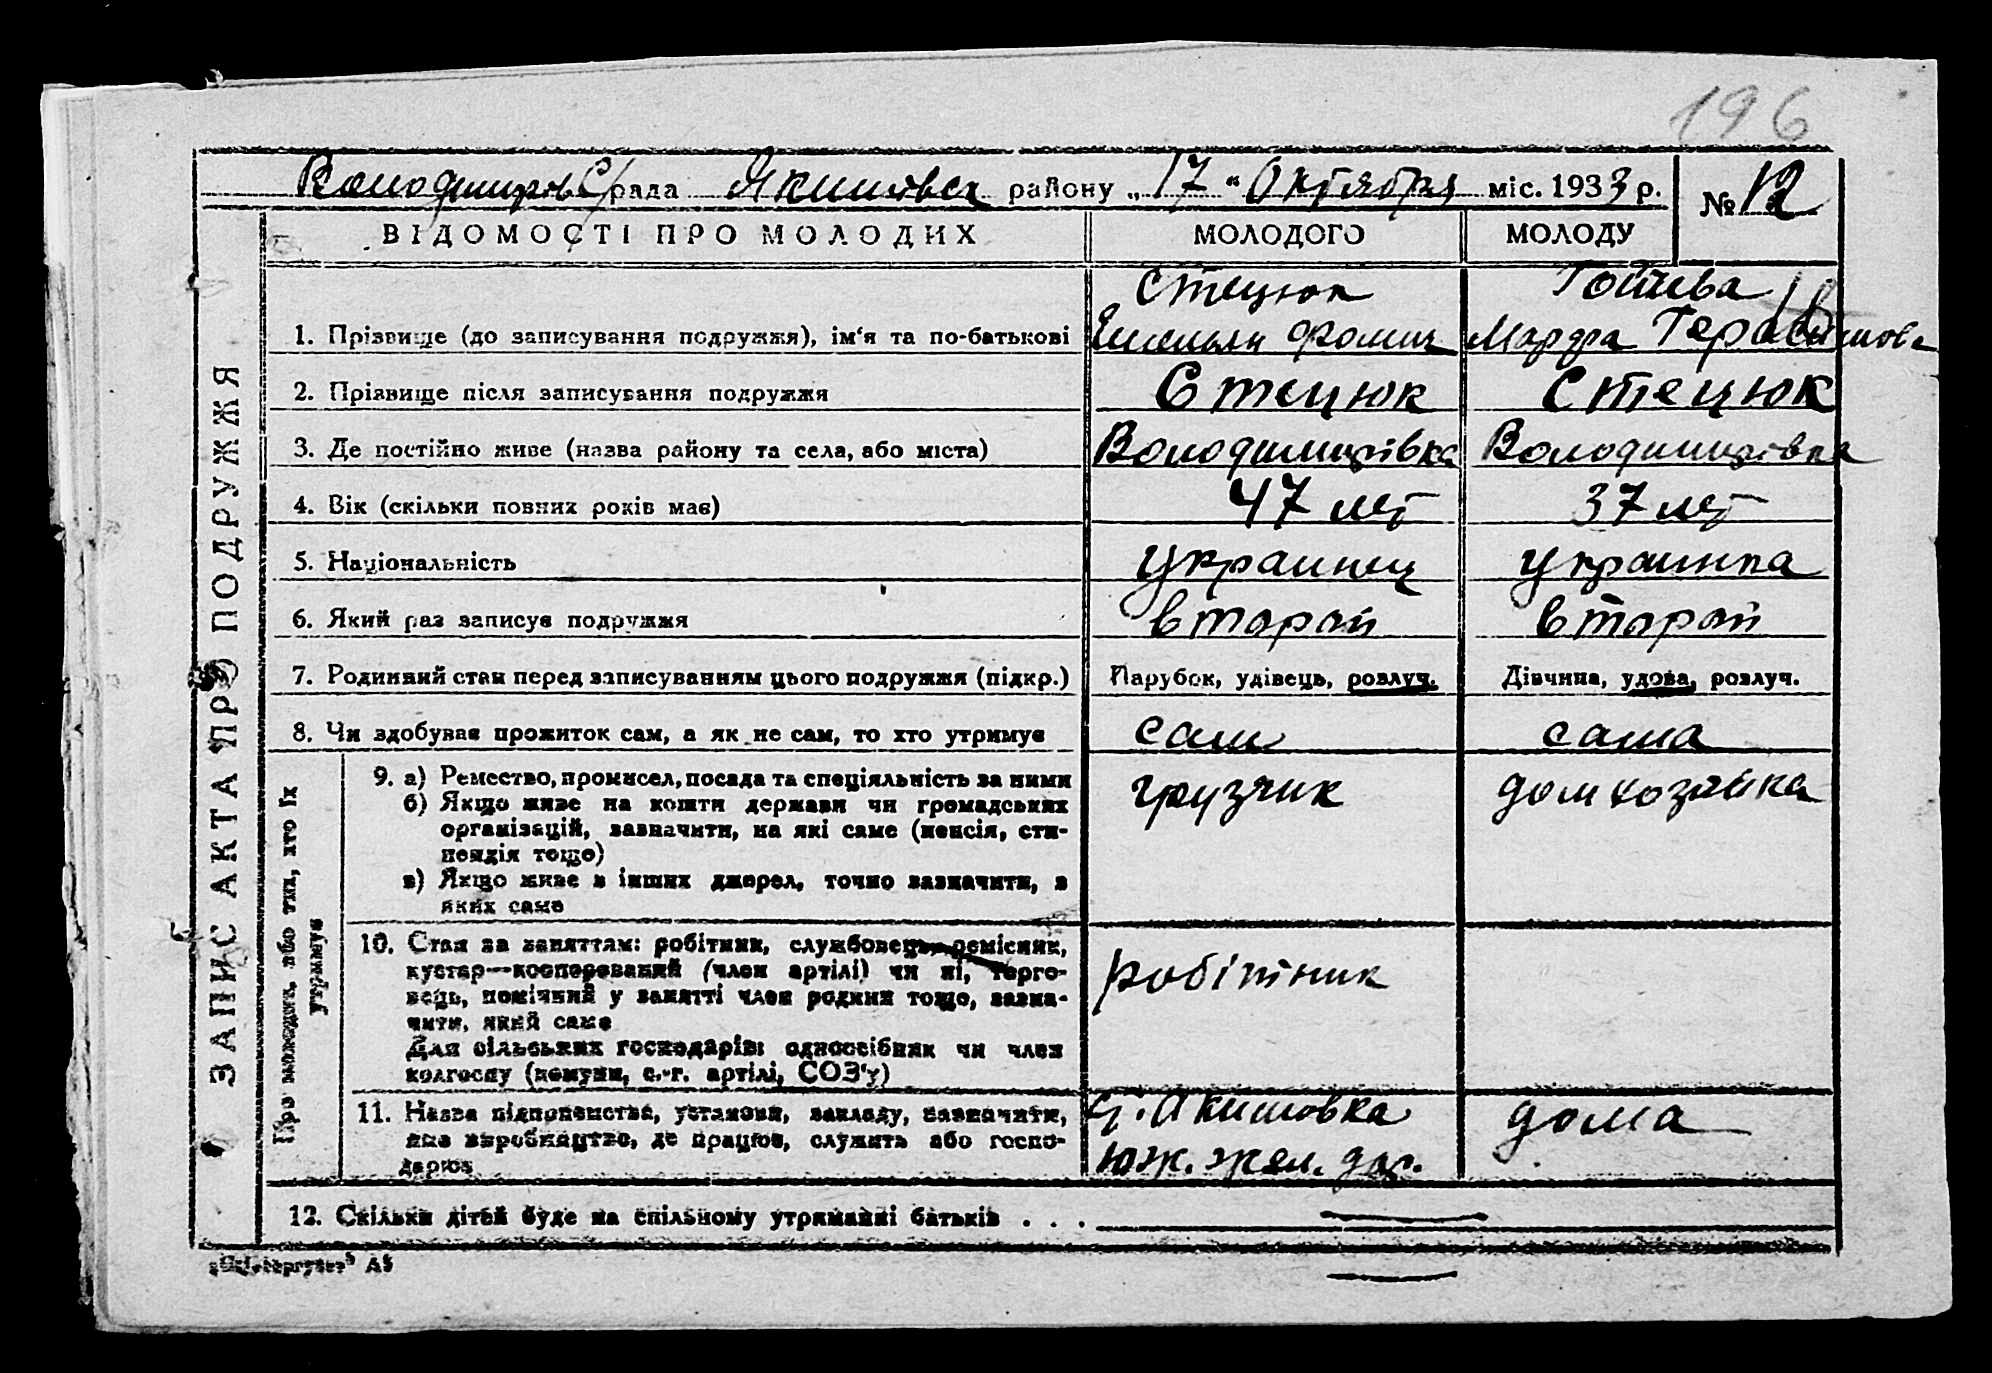 196
Володимирівс/рада Якимовск району „17“ Октября міс. 1933 р. № 12
ВІДОМОСТІ ПРО МОЛОДИХ МОЛОДОГО МОЛОДУ
ЗАПИС АКТА ПРО ПОДРУЖЖЯ
Стецюк
1. Прізвище (до записування подружжя), ім‘я та по-батькові Емельян Фомич Марфа
2. Прізвище після записування подружжя Стецюк Стецюк
3. Де постійно живе (назва району та села, або міста) Володимирівка Володимирівка
4. Вік (скільки повних років має) 47 лет 37 лет
5. Національність украинец украинка
6. Який раз записує подружжя второй второй
7. Родинний стан перед записуванням цього подружжя (підкр.) Парубок, удівець, розлуч. Дівчина, удова, розлуч.
8. Чи здобуває прожиток сам, а як не сам, то хто утримує сам сама
Про молодих, або тих, хто їх
утримує
9. а) Ремество, промисел, посада та спеціяльність за ними грузчик домхозяйка
б) Якщо живе на кошти держави чи громадських
організацій, зазначити, на які саме (пенсія, сти-
пендія тощо)
в) Якщо живе з інших джерел, точно зазначити, з
яких саме
10. Стан за заняттям: робітник, службовець, ремісник, робітник
кустар—кооперований (член артілі) чи ні, торго-
вець, помічний у занятті член родини тощо, зазна-
чити, який саме
Для сільських господарів: одноосібник чи член
колгоспу (комуни, с.-г. артілі, СОЗ‘у)
11. Назва підприємства, установи, закладу, зазначити, ст. Акимовка дома
яке виробництво, де працює, служить або госпо- Юж. жел. дор.
дарює
12. Скільки дітей буде на спільному утриманні батьків . . .